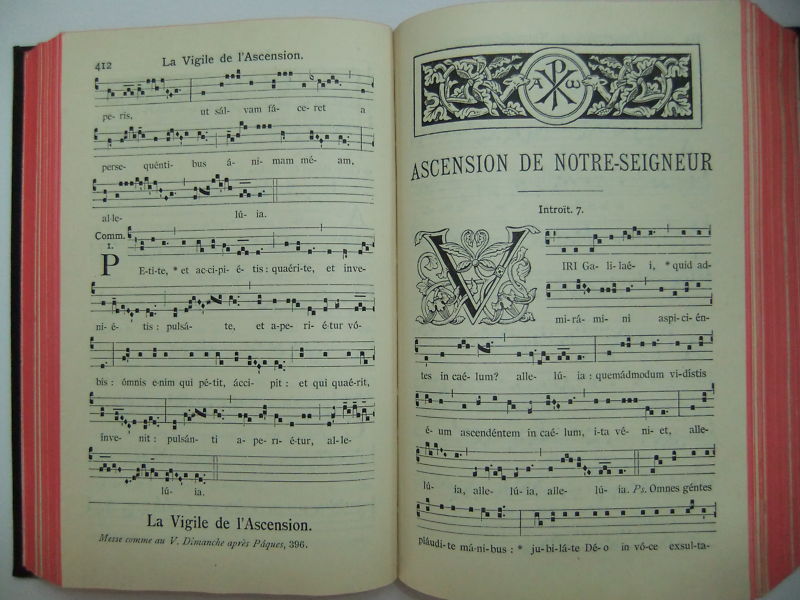 412 La Vigile de l'Ascension.
pe- ris, ut sál- vam fá- ce- ret a
perse- quénti- bus á- ni- mam mé- am,
al-le- lú- ia.
Comm.
1.
P E-ti-te, * et ac-ci-pi- é- tis : quaéri-te, et inve-
ni- é- tis : pulsá- te, et a-pe- ri- é-tur vó-
bis : ómnis e-nim qui pé-tit, ácci- pit : et qui quaé-rit,
ínve- nit : pulsán- ti a- pe- ri- é-tur, al-le-
lú- ia.
La Vigile de l'Ascension.
Messe comme au V. Dimanche après Pâques, 396.
A ω
ASCENSION DE NOTRE-SEIGNEUR
Introït. 7.
V IRI Ga- li-laé- i, * quid ad-
mi-rá- mi- ni aspi-ci-én-
tes in caé-lum? alle- lú- ia : quemádmodum vi-dístis
é- um ascendéntem in caé-lum, i-ta vé- ni- et, alle-
lú- ia, alle- lú- ia, alle- lú- ia. Ps. Omnes géntes
pláudi-te má-ni-bus : * ju-bi-lá-te Dé- o in vó-ce exsul-ta-